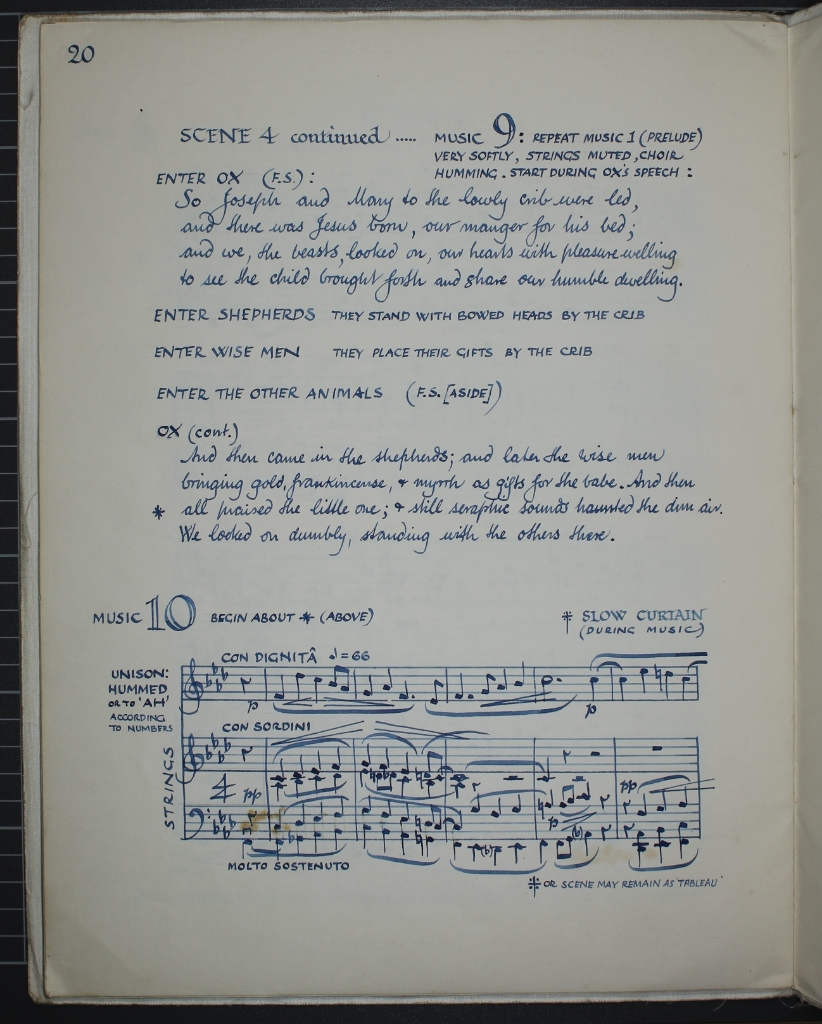 20
SCENE 4 continued ..... MUSIC 9: REPEAT MUSIC 1 (PRELUDE)
VERY SOFTLY, STRINGS MUTED, CHOIR
HUMMING. START DURING OX'S SPEECH:
ENTER OX (F.S.):
So Joseph and Mary to the lowly crib were led,
and there was Jesus born, our manger for his bed;
and we, the beasts, looked on, our hearts with pleasure welling
to see the child brought forth and share our humble dwelling.
ENTER SHEPHERDS THEY STAND WITH BOWED HEADS BY THE CRIB
ENTER WISE MEN THEY PLACE THEIR GIFTS BY THE CRIB
ENTER THE OTHER ANIMALS (F.S. [ASIDE])
OX (cont.)
And then came in the shepherds; and later the wise men
bringing gold, frankincense, & myrrh as gifts for the babe. And then
* all praised the little one; & still seraphic sounds haunted the dim air.
We looked on dumbly, standing with the others there.
MUSIC 10 BEGIN ABOUT * (ABOVE)
⁜ SLOW CURTAIN
(DURING MUSIC)
CON DIGNITÂ ♩=66
UNISON:
HUMMED
OR TO 'AH'
ACCORDING
TO NUMBERS
p
p
CON SORDINI
STRINGS
4
pp
pp
p
MOLTO SOSTENUTO
⁜ OR SCENE MAY REMAIN AS 'TABLEAU'